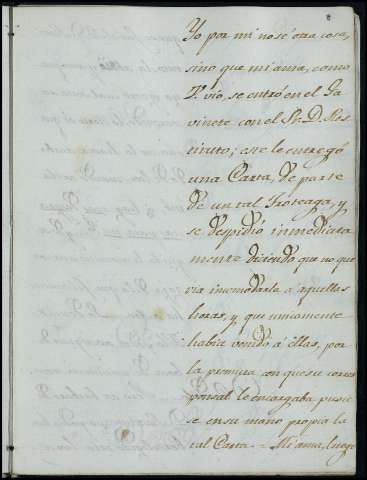 Yo por mi no sé otra cosa,
sino que mi ama, como
V. vio, se entró en el Ga
vinete con el Sr. D. Res
tituto; este le entregó
una Carta, de parte
de un tal Troteaga, y
se despidio inmediata
mente diciendo que no que
ria incomodarla à aquellas
horas, y que unicamente
habia venido à ellas, por
la premura con que su corres
ponsal le encargaba pusie
se en su mano propia la
tal Carta. = Mi ama, luego